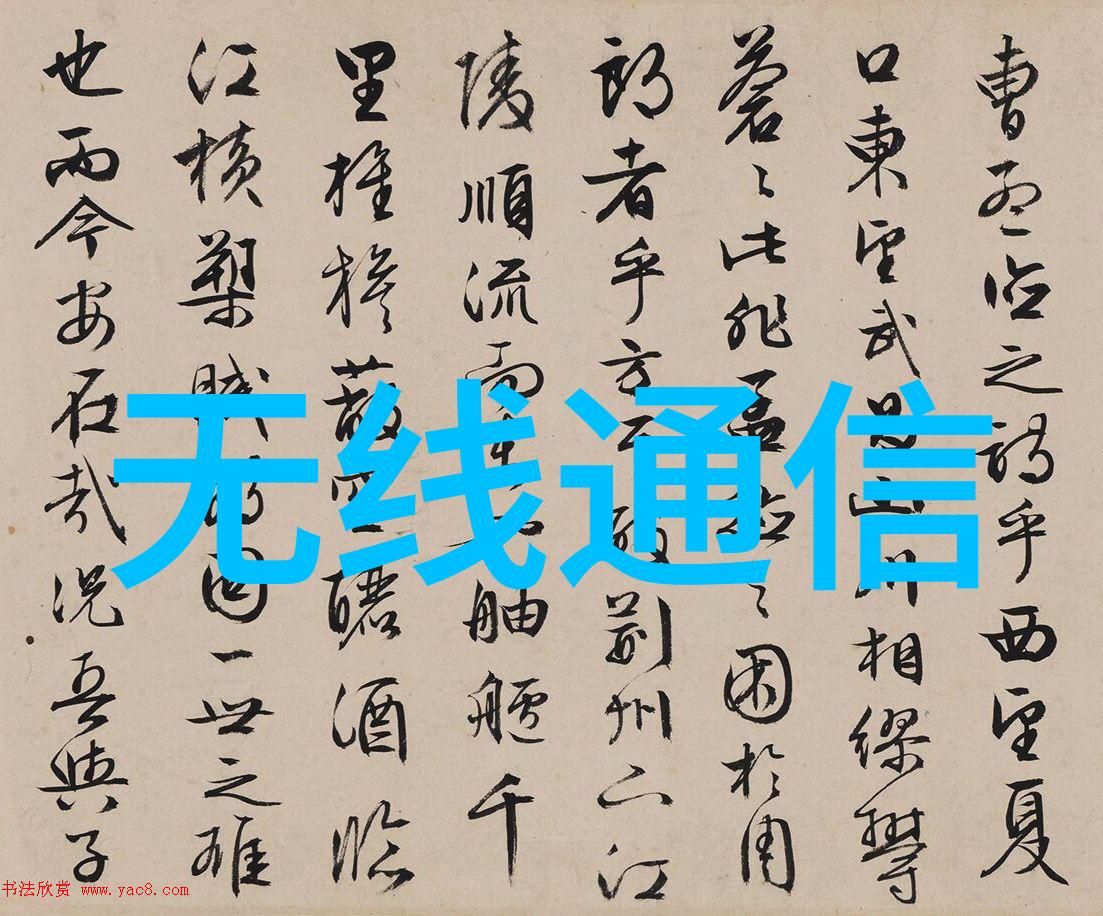 曹孟德之詩乎西望夏
口東望武昌山川相繆鬱
蒼〻此非孟德之困於周
郎者乎方其破荊州下江
陵順流而東也舳艫千
里旌旗蔽空釃酒臨
江橫槊賦詩固一世之雄
也而今安在哉況吾與子
无线通信
书法欣赏 www.yac8.com